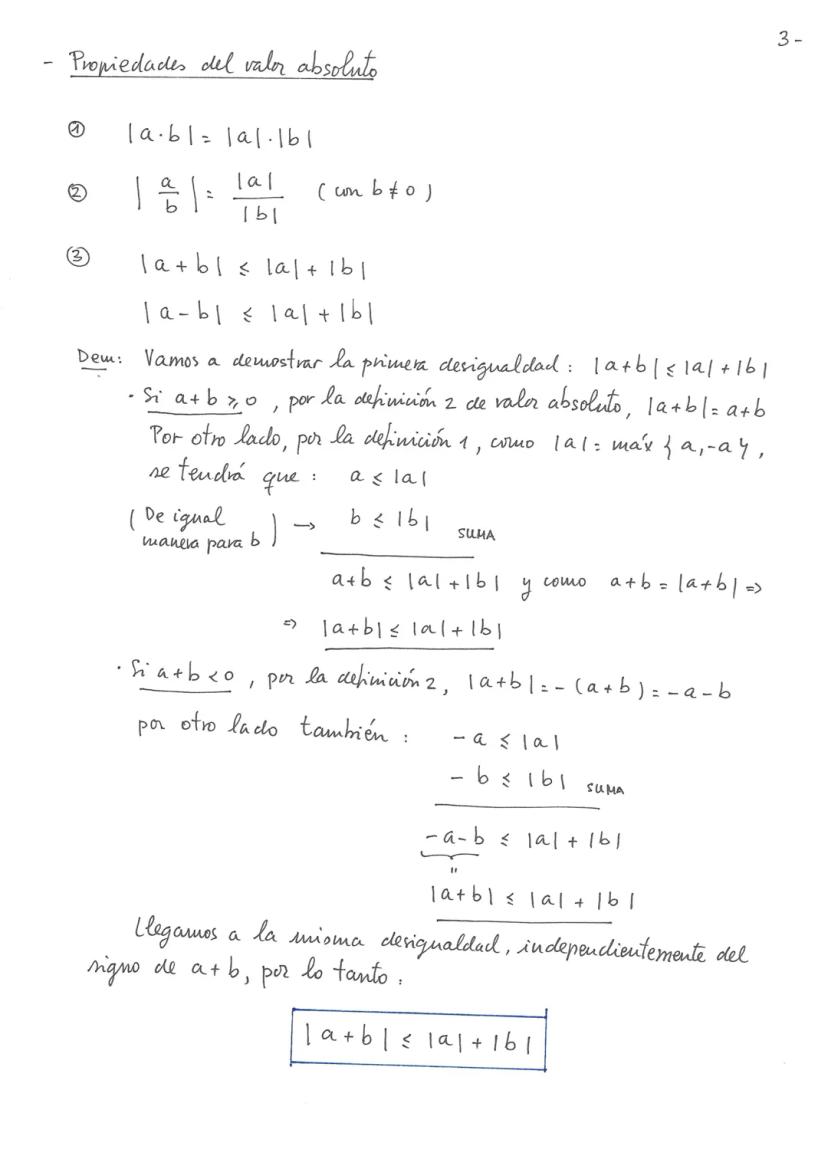 3-
- Propiedades del valor absoluto
① |a·b| = |a|·|b|
② |a/b| = |a|/|b| (con b≠0)
③ |a+b| ≤ |a| + |b|
|a-b| ≤ |a| + |b|
Dem: Vamos a demostrar la primera desigualdad: |a+b| ≤ |a| + |b|
· Si a+b ≥ 0, por la definición 2 de valor absoluto, |a+b| = a+b
Por otro lado, por la definición 1, como |a| = máx {a,-a},
se tendrá que: a ≤ |a|
(De igual manera para b) → b ≤ |b| SUMA
a+b ≤ |a| + |b| y como a+b = |a+b| =>
=> |a+b| ≤ |a| + |b|
· Si a+b < 0, por la definición 2, |a+b| = -(a+b) = -a-b
por otro lado también: -a ≤ |a|
-b ≤ |b| SUMA
-a-b ≤ |a| + |b|
"
|a+b| ≤ |a| + |b|
Llegamos a la misma desigualdad, independientemente del
signo de a+b, por lo tanto:
|a+b| ≤ |a| + |b|